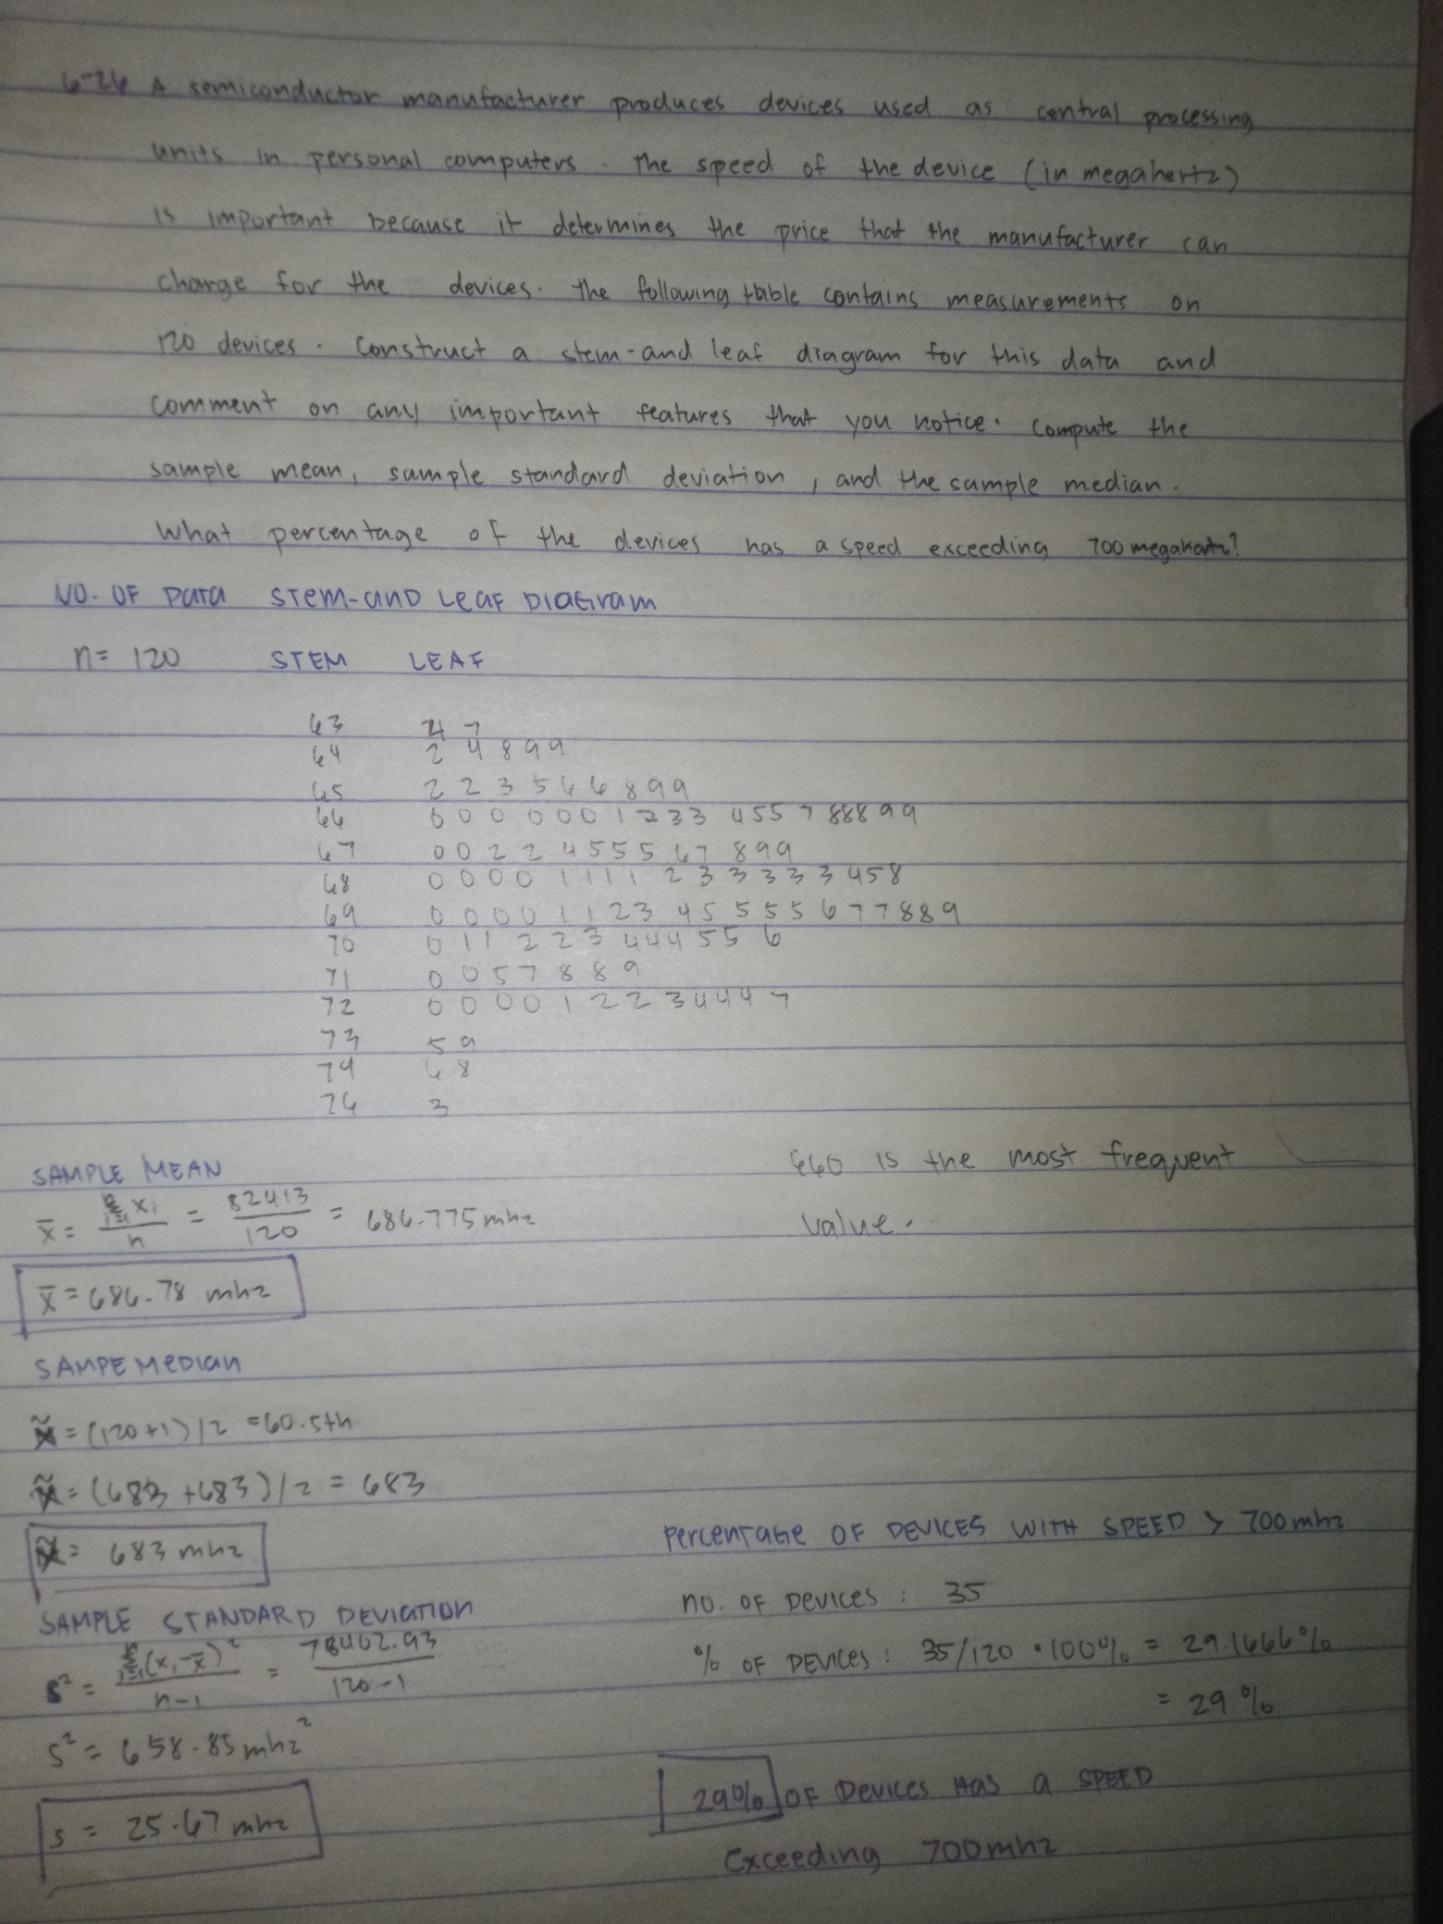 6-26 A semiconductor manufacturer produces devices used as central processing
units in personal computers. The speed of the device (in megahertz)
is important because it determines the price that the manufacturer can
charge for the devices. The following table contains measurements on
120 devices. Construct a stem-and leaf diagram for this data and
comment on any important features that you notice. Compute the
sample mean, sample standard deviation, and the sample median.
What percentage of the devices has a speed exceeding 700 megahertz?
NO. OF DATA STEM-AND LEAF DIAGRAM
n = 120 STEM LEAF
63 4 7
64 2 4 8 9 9
65 2 2 3 5 6 6 8 9 9
66 0 0 0 0 0 0 0 1 2 3 3 4 5 5 7 8 8 8 9 9
67 0 0 2 2 4 5 5 5 6 7 8 9 9
68 0 0 0 0 1 1 1 1 2 3 3 3 3 3 4 5 8
69 0 0 0 0 1 1 2 3 4 5 5 5 5 6 7 7 8 8 9
70 0 1 1 2 2 3 4 4 4 5 5 6
71 0 0 5 7 8 8 9
72 0 0 0 0 1 2 2 3 4 4 4 7
73 5 9
74 6 8
76 3
SAMPLE MEAN
660 is the most frequent
value.
x̄ = Σⁿᵢ₌₁ xᵢ / n = 82413 / 120 = 686.775 mhz
x̄ = 686.78 mhz
SAMPE MEDIAN
x̃ = (120+1)/2 = 60.5th
x̃ = (683 + 683)/2 = 683
x̃ = 683 mhz
SAMPLE STANDARD DEVIATION
s² = Σⁿᵢ₌₁ (xᵢ - x̄)² / n-1 = 78402.93 / 120-1
s² = 658.85 mhz²
s = 25.67 mhz
PERCENTAGE OF DEVICES WITH SPEED > 700 mhz
NO. OF DEVICES : 35
% OF DEVICES : 35/120 • 100% = 29.1666%
= 29%
29% OF DEVICES HAS A SPEED
Exceeding 700mhz